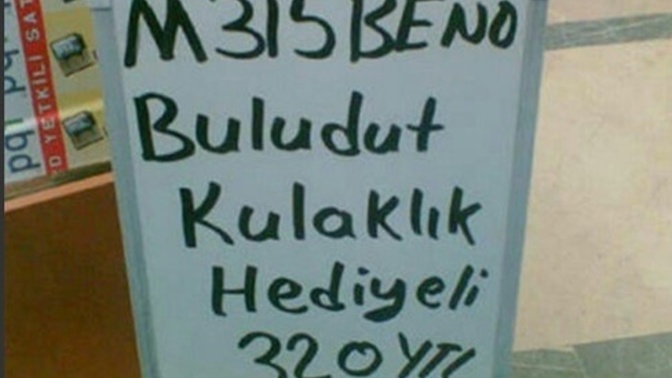 M315BENQ
Buludut
Kulaklık
Hediyeli
320 YTL
D YETKİLİ SAT
pqi